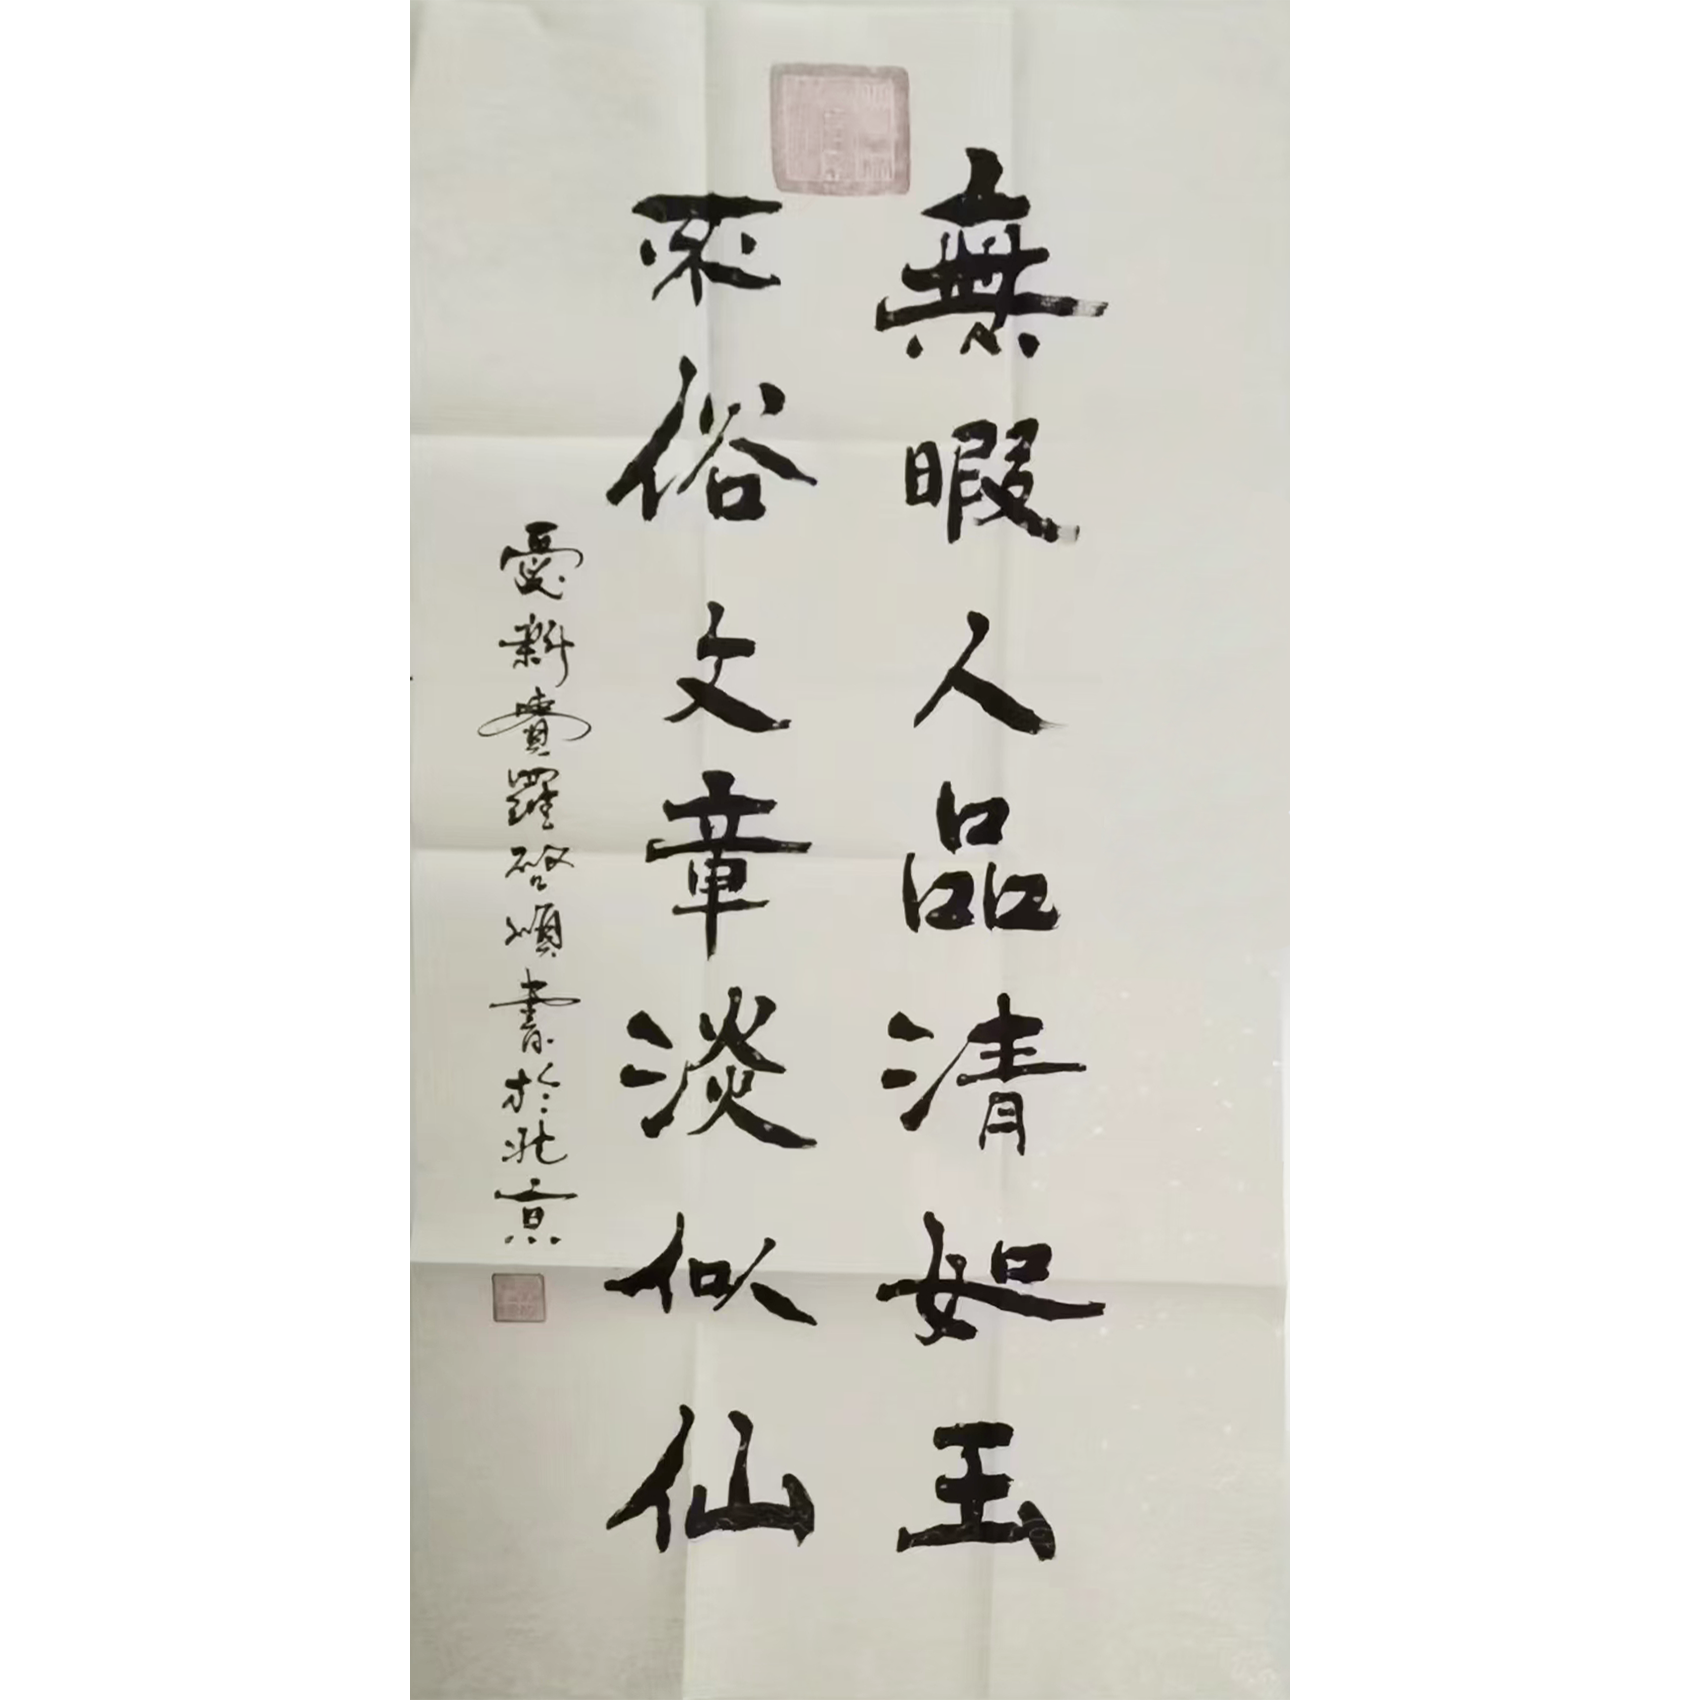 無暇人品清如玉
不俗文章淡似仙
愛新覺羅啓順書於北京